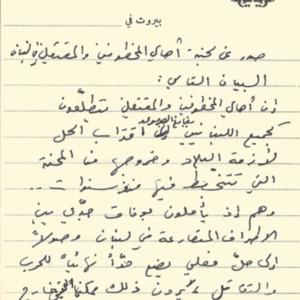 بيروت في
صدر عن لجنة أهالي المخطوفين والمعتقلين في لبنان
البيان التالي:
إن أهالي المخطوفين والمعتقلين يتطلعون
كجميع اللبنانيين اقتراب الحل
لأزمة البلاد وخروجها من المحنة
التي تتخبط فيها منذ سنوات...
وهم إذ يأملون بوفاق جدّي بين
الأطراف المتصارعة في لبنان وصولاً
إلى حل فعلي يضع حدّاً نهائياً للحرب
والتقاتل ذلك ممكناً خارج